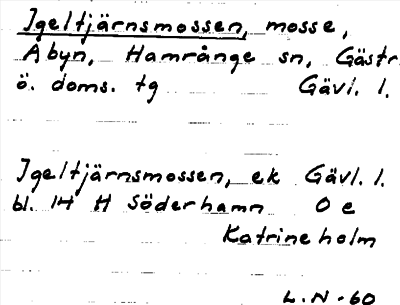 Igeltjärnsmossen, mosse,
Åbyn, Hamrånge sn, Gästr.
ö. doms. tg Gävl. l.
Igeltjärnsmossen, ek Gävl. l.
bl. 14 H Söderhamn O e
Katrineholm
L.N.60